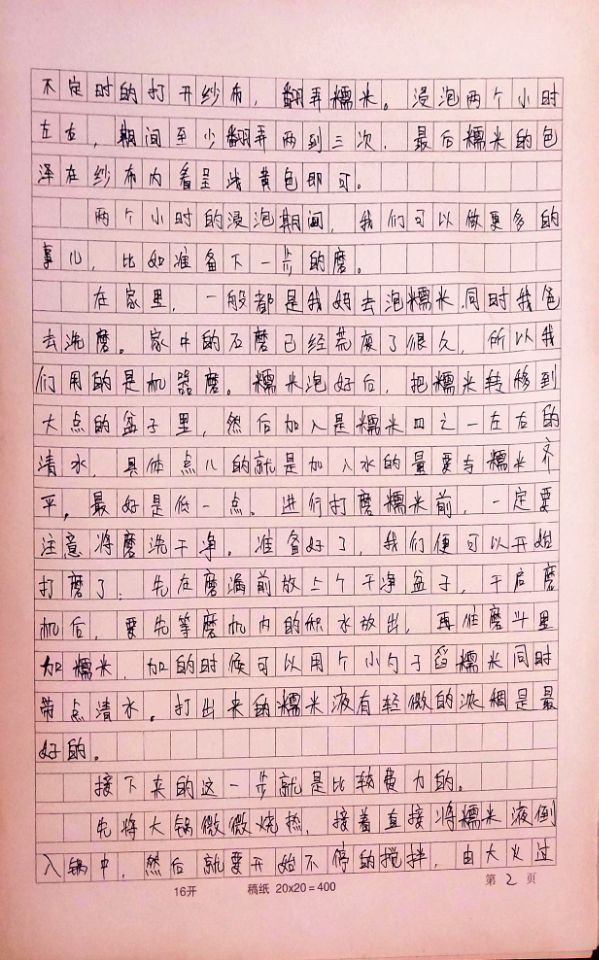 不定时的打开纱布，翻弄糯米。浸泡两个小时
左右，期间至少翻弄两到三次，最后糯米的色
泽在纱布内看呈浅黄色即可。
两个小时的浸泡期间，我们可以做更多的
事儿，比如准备下一步的磨。
在家里，一般都是我妈去泡糯米，同时我爸
去洗磨。家中的石磨已经荒废了很久，所以我
们用的是机器磨。糯米泡好后，把糯米转移到
大点的盆子里，然后加入是糯米四之一左右的
清水，具体点儿的就是加入水的量要与糯米齐
平，最好是低一点。进行打磨糯米前，一定要
注意将磨洗干净。准备好了，我们便可以开始
打磨了，先在磨漏前放上个干净盆子，开启磨
机后，要先等磨机内的积水放出，再往磨斗里
加糯米，加的时候可以用个小勺子舀糯米同时
带点清水。打出来的糯米液有轻微的浓稠是最
好的。
接下来的这一步就是比较费力的。
先将大锅微微烧热，接着直接将糯米液倒
入锅中，然后就要开始不停的搅拌，由大火过
16开 稿纸 20x20=400 第 2 页